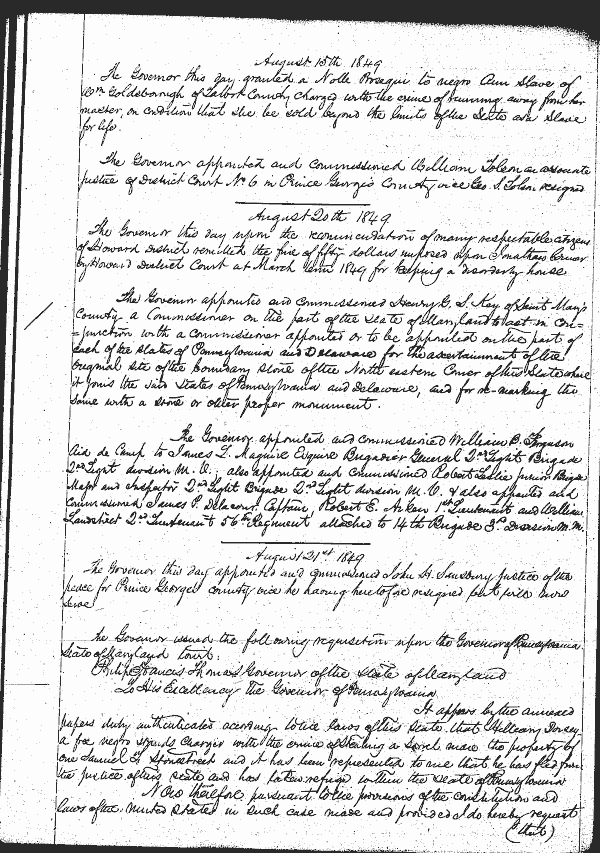 August 15th 1849
The Governor this day granted a Nolle Prosequi to negro Ann Slave of
Wm Goldsborough of Talbot County charged with the crime of running away from her
master, on condition that she be sold beyond the limits of the State as a Slave
for life.
The Governor appointed and commissioned William Tolson an associate
justice of District Court No 6 in Prince George's County vice Geo. S. Tolson resigned
August 20th 1849
The Governor this day upon the recommendation of many respectable citizens
of Howard District remitted the fine of fifty dollars imposed upon Jonathan
by Howard District Court at March term 1849 for keeping a disorderly house
The Governor appointed and commissioned Henry G. S. Key of Saint Mary's
County a Commissioner on the part of the State of Maryland to act in con=
=junction with a commissioner appointed or to be appointed on the part of
each of the states of Pennsylvania and Delaware for the ascertainment of the
original site of the boundary stone of the North eastern Corner of this State where
it joins the said States of Pennsylvania and Delaware, and for re-marking the
same with a stone or other proper monument.
The Governor appointed and commissioned William B. Ferguson
Aid de Camp to James L. Maguire Esquire Brigadier General 2nd Light Brigade
2nd Light division M. V.; also appointed and commissioned Robert Leslie junior Brigade
Major and Inspector 2nd Light Brigade 2nd Light division M. V. & also appointed and
Commissioned James P. Captain, Robert E. 1st Lieutenant and William
2nd Lieutenant 56th Regiment attached to 14th Brigade 3d Division M. M.
August 21st 1849
The Governor this day appointed and commissioned John H. Sansbury Justice of the
peace for Prince George's county vice he having heretofore resigned but will now
serve
The Governor issued the following requisition upon the Governor of Pennsylvania
State of Maryland to wit:
Philip Francis Thomas Governor of the State of Maryland
To His Excellency the Governor of Pennsylvania
It appears by the annexed
papers duly authenticated according to the laws of this State that Hilleary Dorsey
a free negro stands charged with the crime of stealing a sorrel mare the property of
one Samuel H. Stonestreet and it has been represented to me that he has fled from
the justice of this state and has taken refuge within the State of Pennsylvania
Now therefore pursuant to the provisions of the constitution and
laws of the United States in such case made and provided I do hereby request